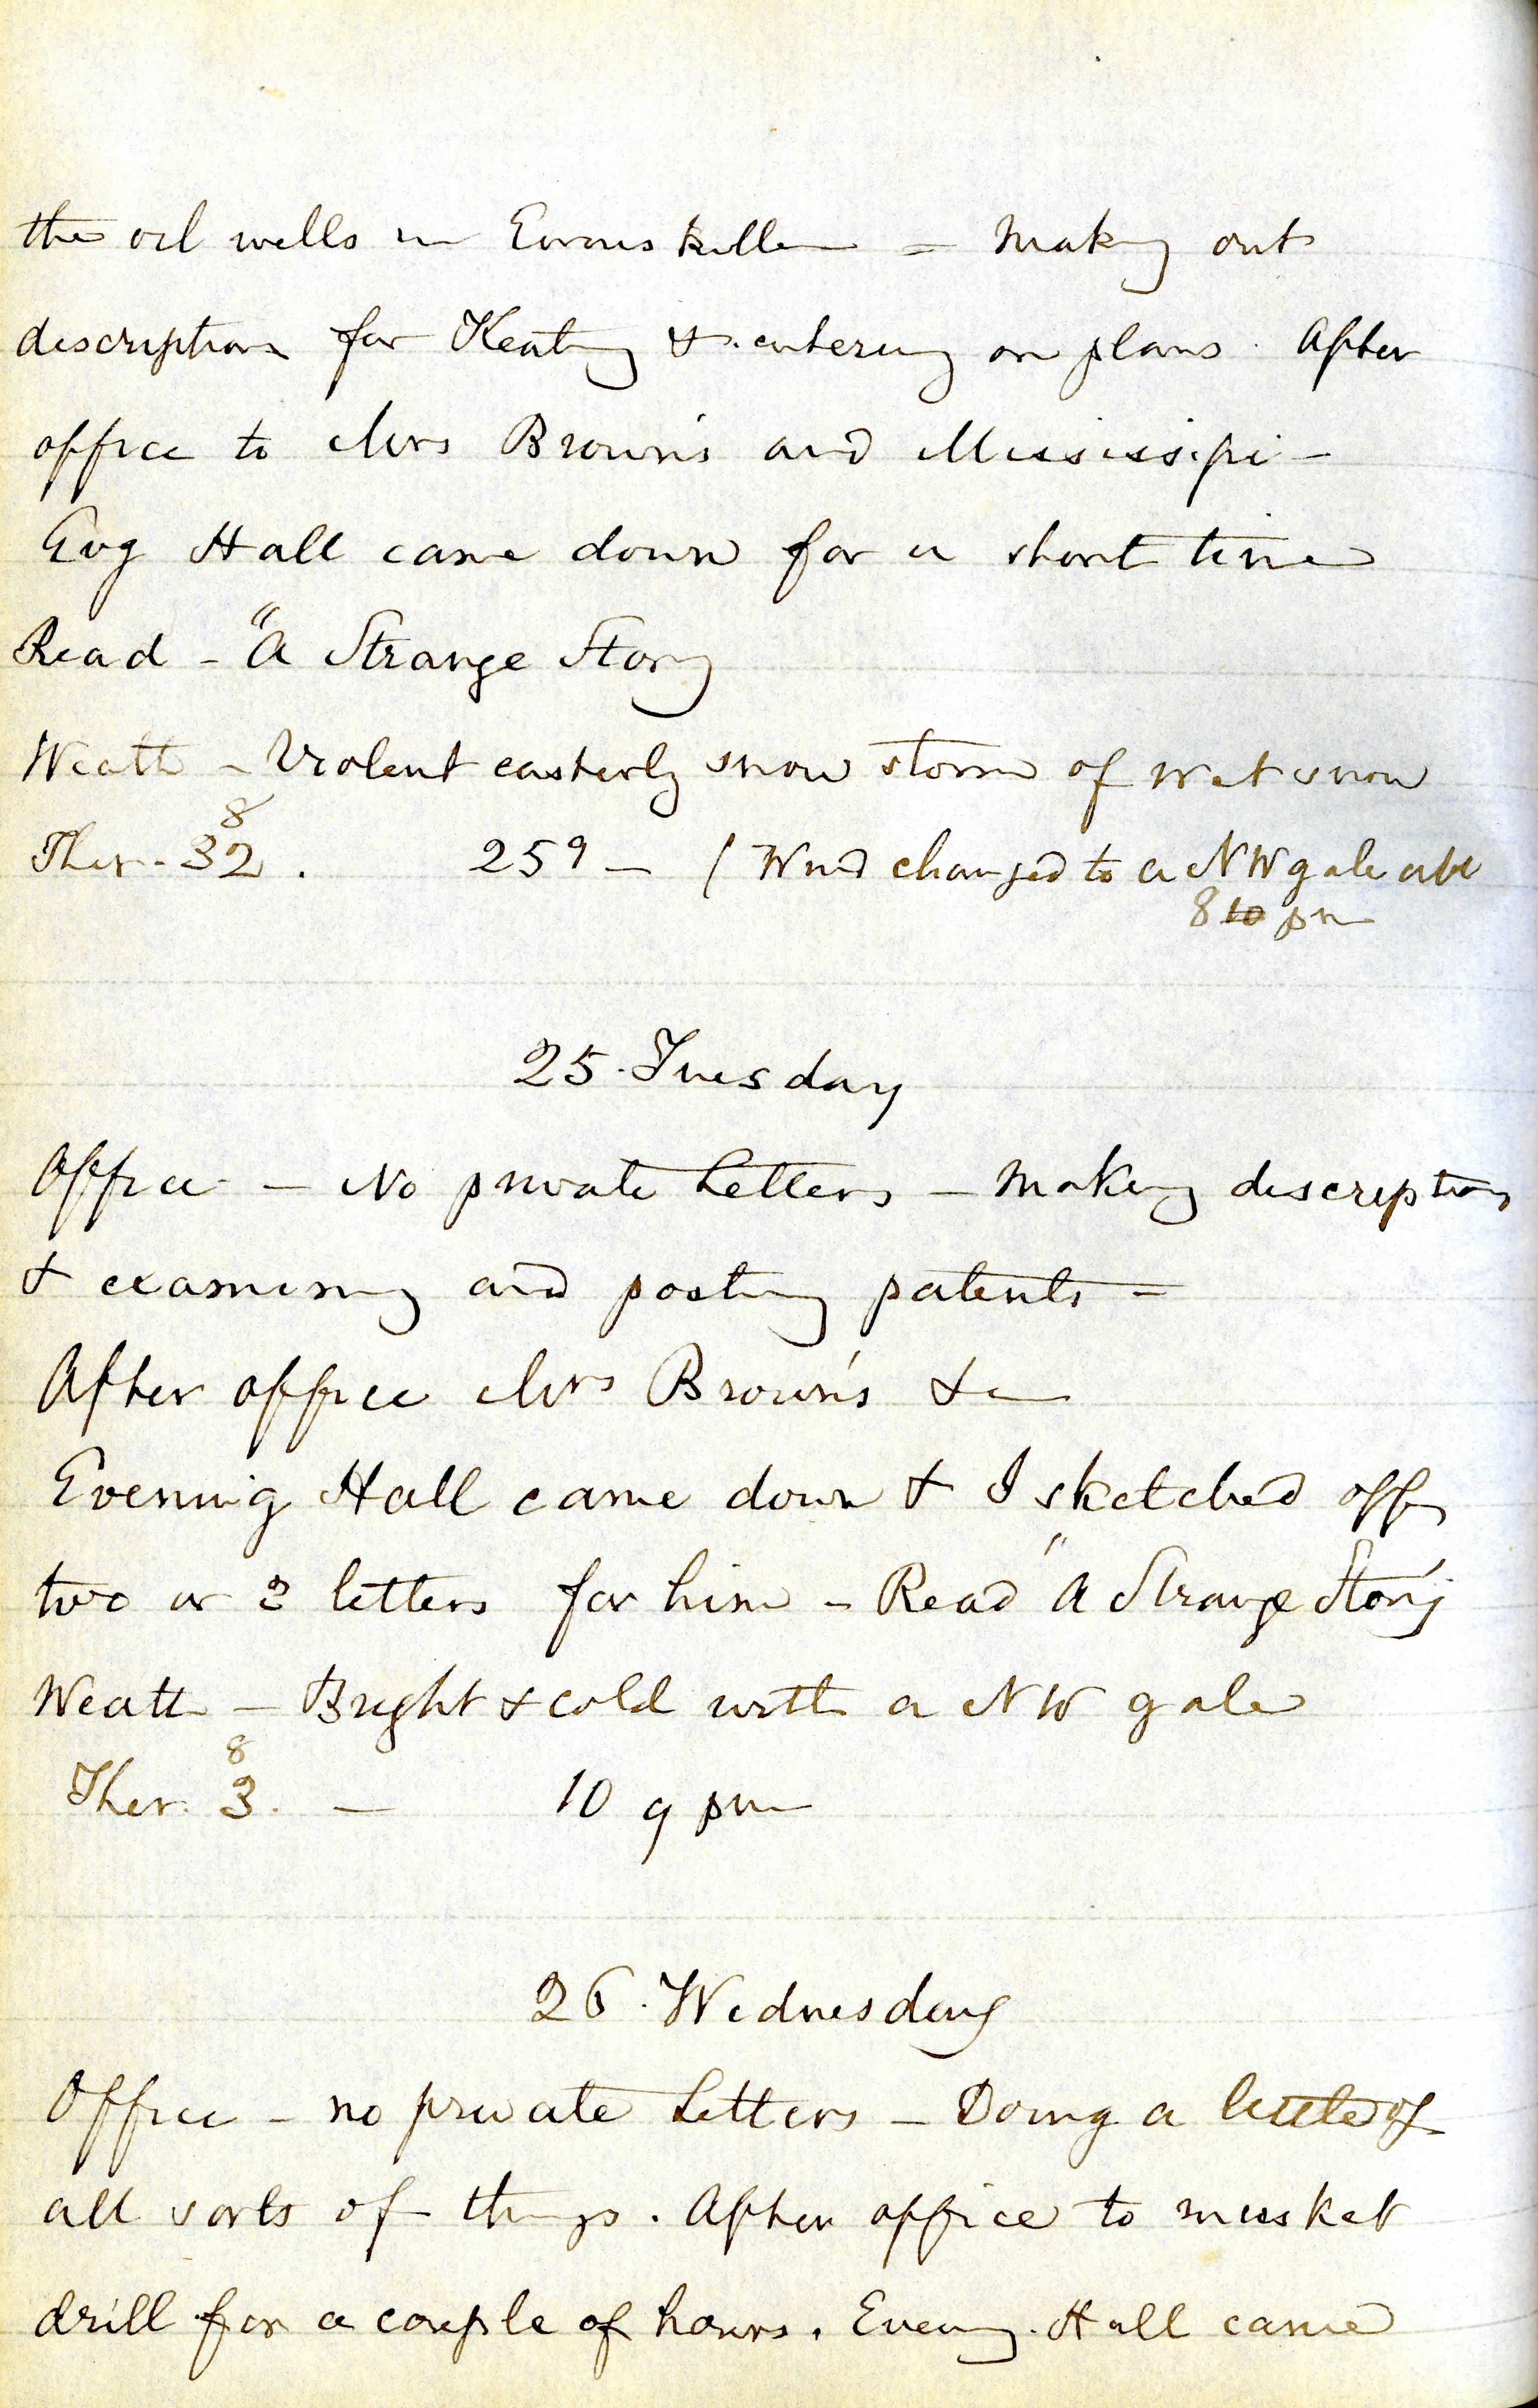 the oil wells in Enniskillen = Making out
descriptions for Keating & entering on plans. After
office to Mrs Brown's and Mississipi -
Evg Hall came down for a short time
Read - "A Strange Story
Weath - Violent easterly snow storm of wet snow
8
Ther - 32. 25 9 - (Wind changed to a NW gale abt
8 10 pm
25. Tuesday
Office - No private Letters - Making descriptions
& examining and posting patents -
After office Mrs Brown's &c
Evening Hall came down & I sketched off
two or 3 letters for him - Read "A Strange Story
Weath - Bright & cold with a NW gale
8
Ther. 3. - 10 9 pm
26. Wednesday
Office - no private Letters - Doing a little of
all sorts of things. After office to musket
drill for a couple of hours. Evening. Hall came